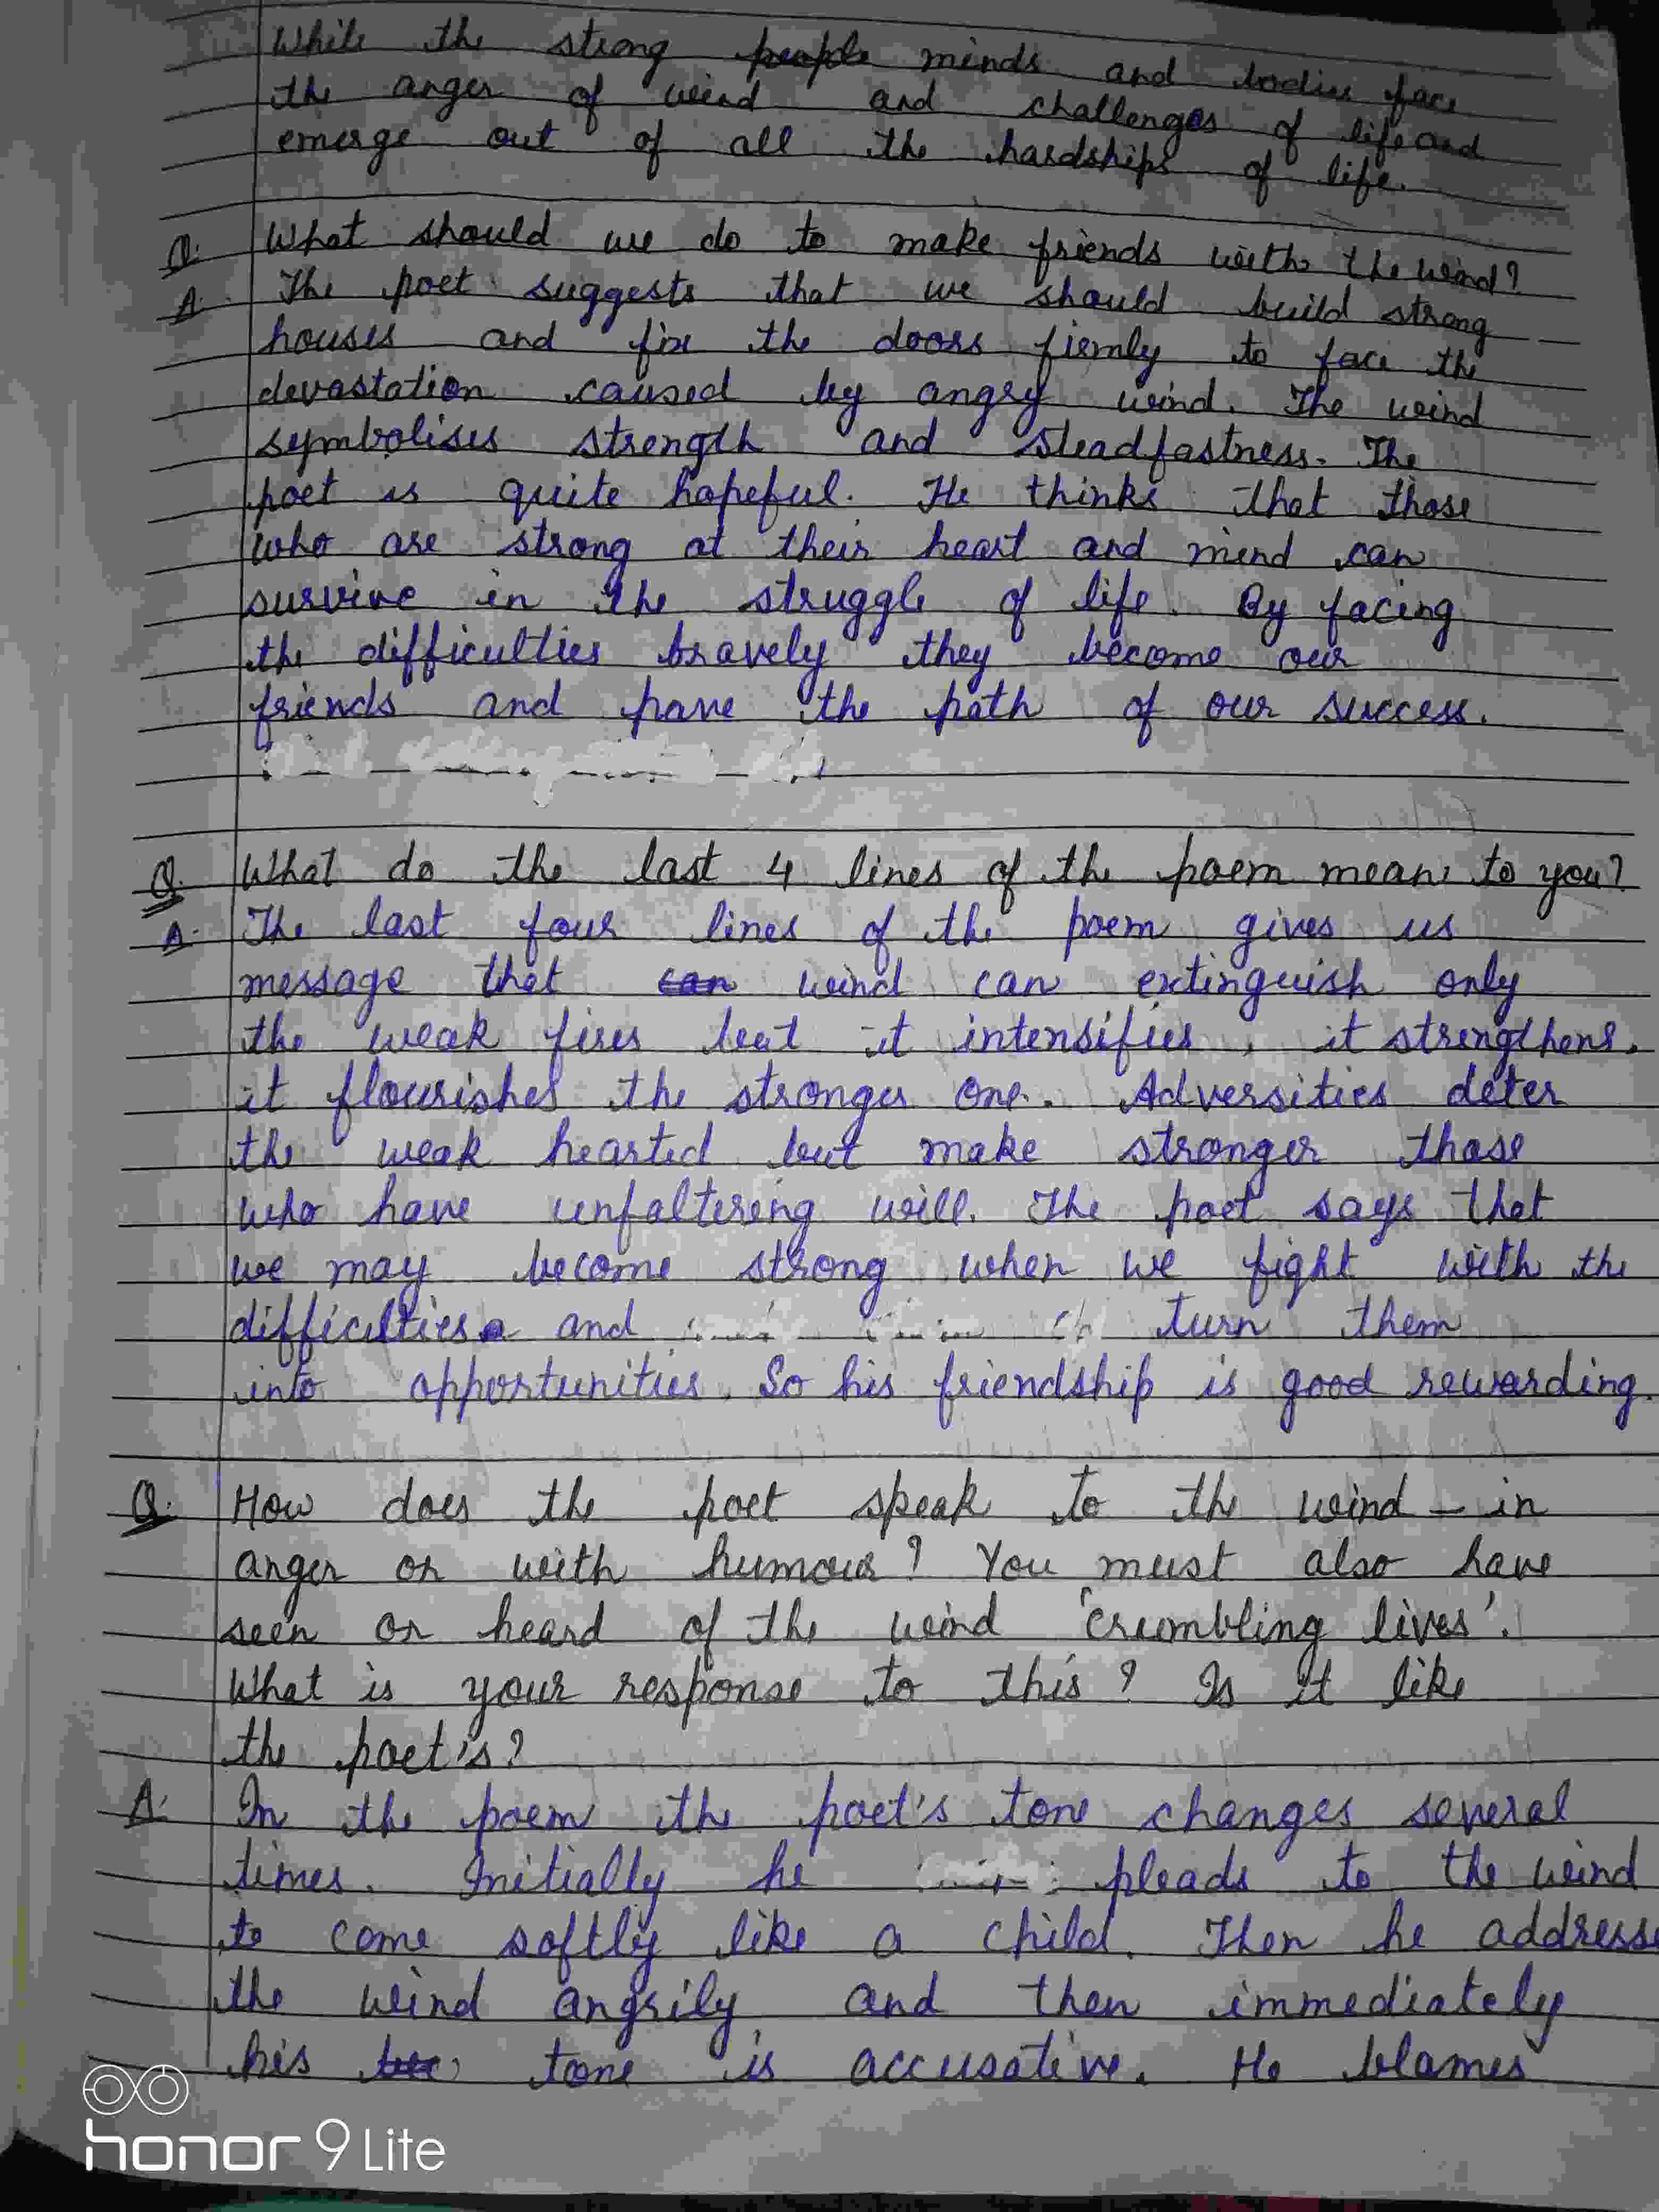 While the strong people minds and bodies face
the anger of wind and challenges of life and
emerge out of all the hardships of life.
Q. What should we do to make friends with the wind?
A. The poet suggests that we should build strong
houses and fix the doors firmly to face the
devastation caused by angry wind. The wind
symbolises strength and steadfastness. The
poet is quite hopeful. He thinks that those
who are strong at their heart and mind can
survive in the struggle of life. By facing
the difficulties bravely they become our
friends and pave the path of our success.
Q. What do the last 4 lines of the poem mean to you?
A. The last four lines of the poem gives us
message that can wind can extinguish only
the weak fires but it intensifies, it strengthens,
it flourishes the stronger one. Adversities deter
the weak hearted but make stronger those
who have unfaltering will. The poet says that
we may become strong when we fight with the
difficulties and turn them
into opportunities. So his friendship is good rewarding.
Q. How does the poet speak to the wind - in
anger or with humour? You must also have
seen or heard of the wind 'crumbling lives'.
What is your response to this? Is it like
the poet's?
A. In the poem the poet's tone changes several
times. Initially he pleads to the wind
to come softly like a child. Then he address
the wind angrily and then immediately
his tone is accusative. He blames
honor 9 Lite